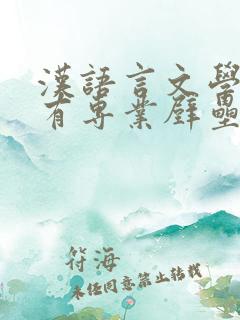 漢語言文學
有專業壁壘
符海
未经同意禁止转载